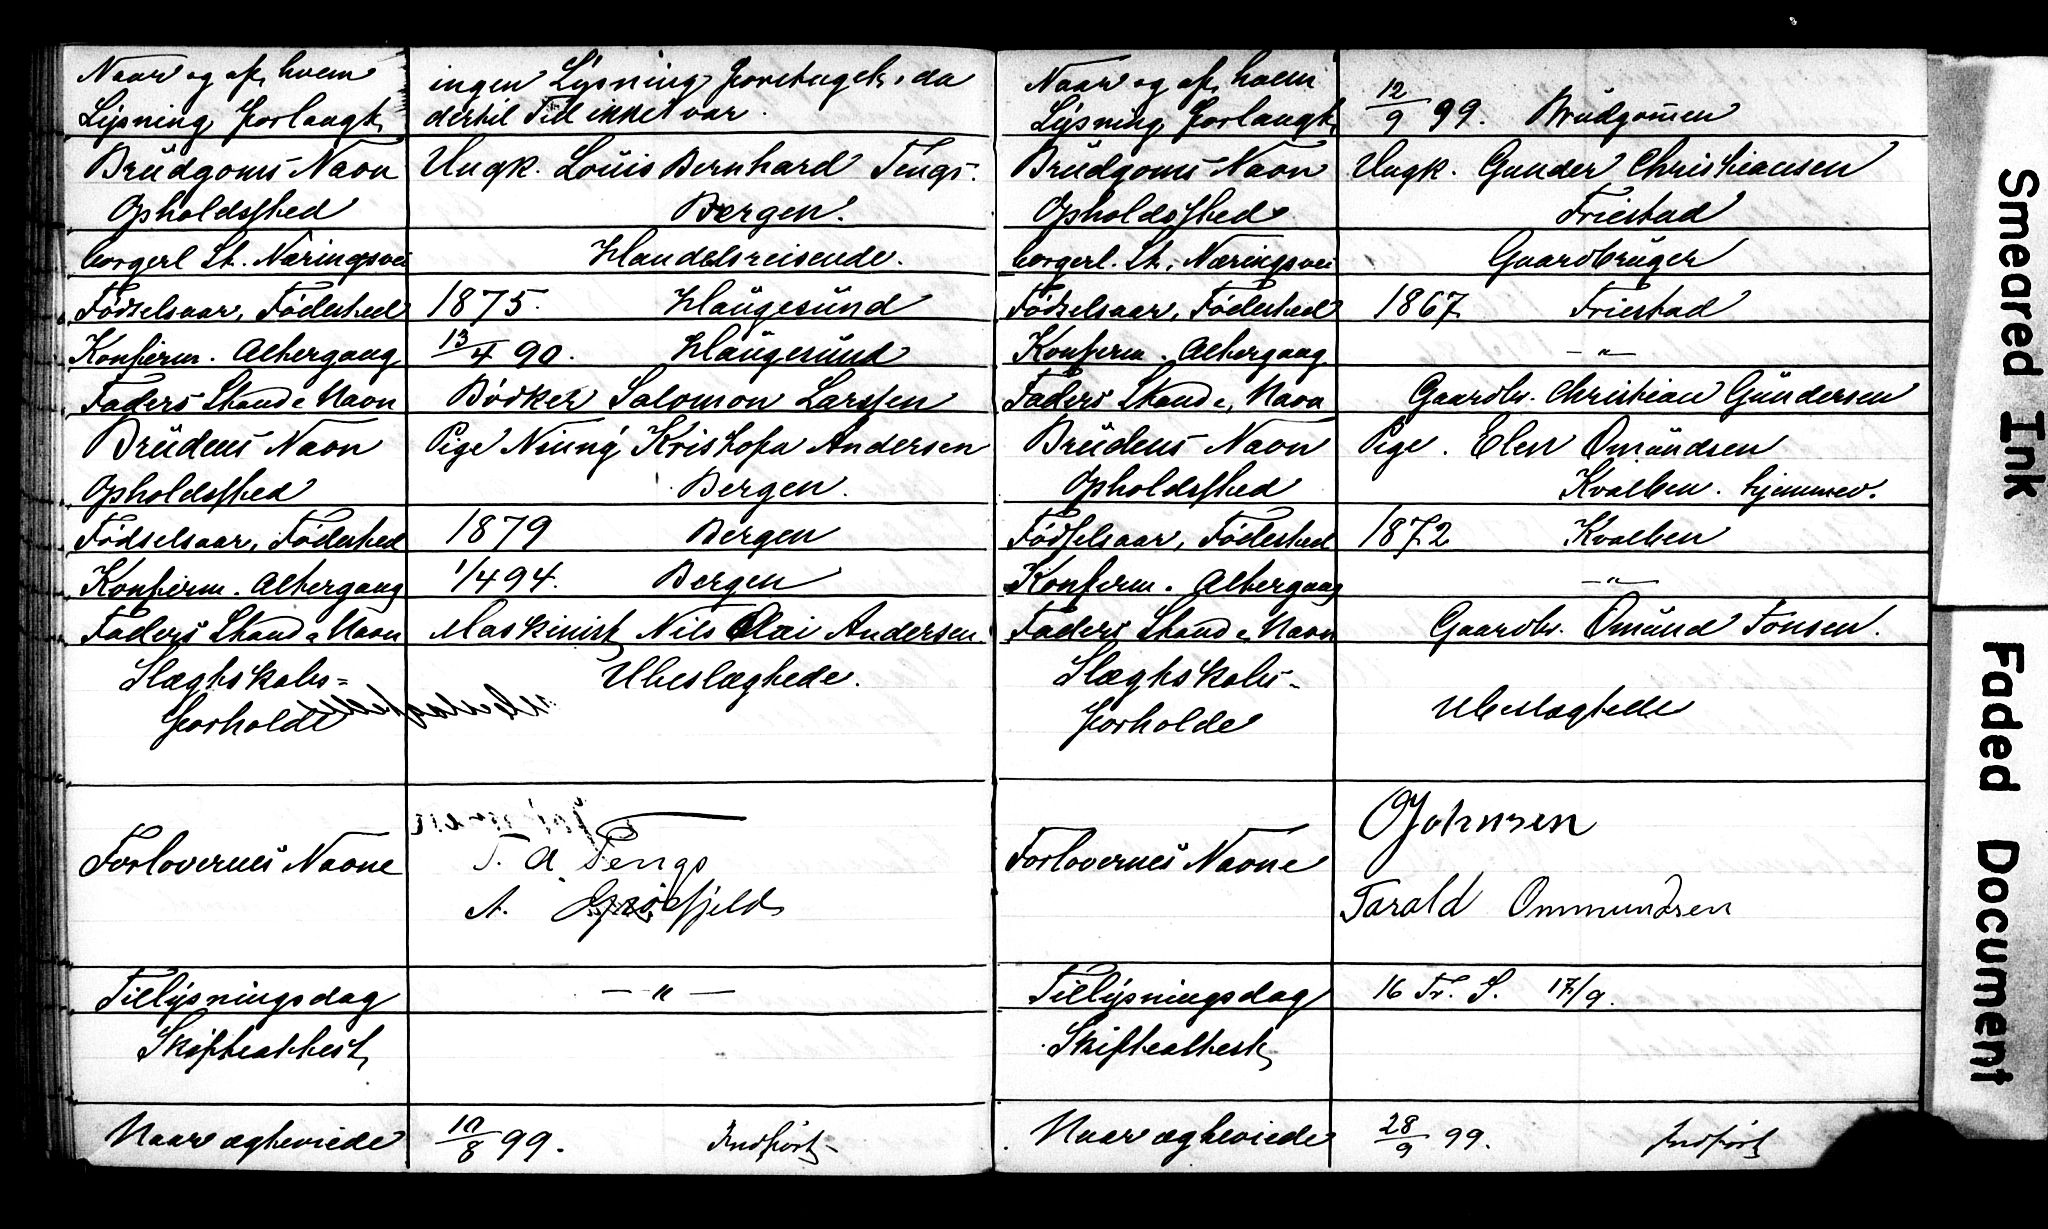 Naar og af hvem ingen Lysning foretaget, da
Lysning forlangt dertil Tid ikke var.
Brudgoms Navn Ungk. Louis Bernhard Tengs.
Opholdssted Bergen.
borgerl. St. Næringsvei Handelsreisende.
Fødselsaar, Fødested 1875. Haugesund
Konfirm. Altergang 13/4 90. Haugesund
Faders Stand & Navn Bødker Salomon Larssen
Brudens Navn Pige Kristofa Andersen
Opholdssted Bergen.
Fødselsaar, Fødested 1879 Bergen
Konfirm. Altergang 1/4 94. Bergen
Faders Stand & Navn Maskinist Nils Olai Andersen
Slægtskabs- Ubeslægtede.
forholde
Forlovernes Navne T. A. Tengs
A.
Tillysningsdag — " —
Skifteattest
Naar ægteviede 10/8 99. Indført
Naar og af hvem
Lysning forlangt 12/9 99. Brudgommen
Brudgoms Navn Ungk. Gunder Christiansen
Opholdssted Friestad
borgerl. St. Næringsvei Gaardbruger
Fødselsaar, Fødested 1867 Friestad
Konfirm. Altergang — " —
Faders Stand & Navn Gaardbr. Christian Gundersen
Brudens Navn Pige. Elen Omundsen
Opholdssted Kvalben. hjemmev.
Fødselsaar, Fødested 1872 Kvalben
Konfirm. Altergang — " —
Faders Stand & Navn Gaardbr. Omund Tonsen.
Slægtskabs-
forholde Ubeslægtede
OJohnsen
Forlovernes Navne
Tarald Ommundsen
Tillysningsdag 16 Tr. S. 17/9.
Skifteattest
Naar ægteviede 28/9 99. Indført
Smeared Ink
Faded Document